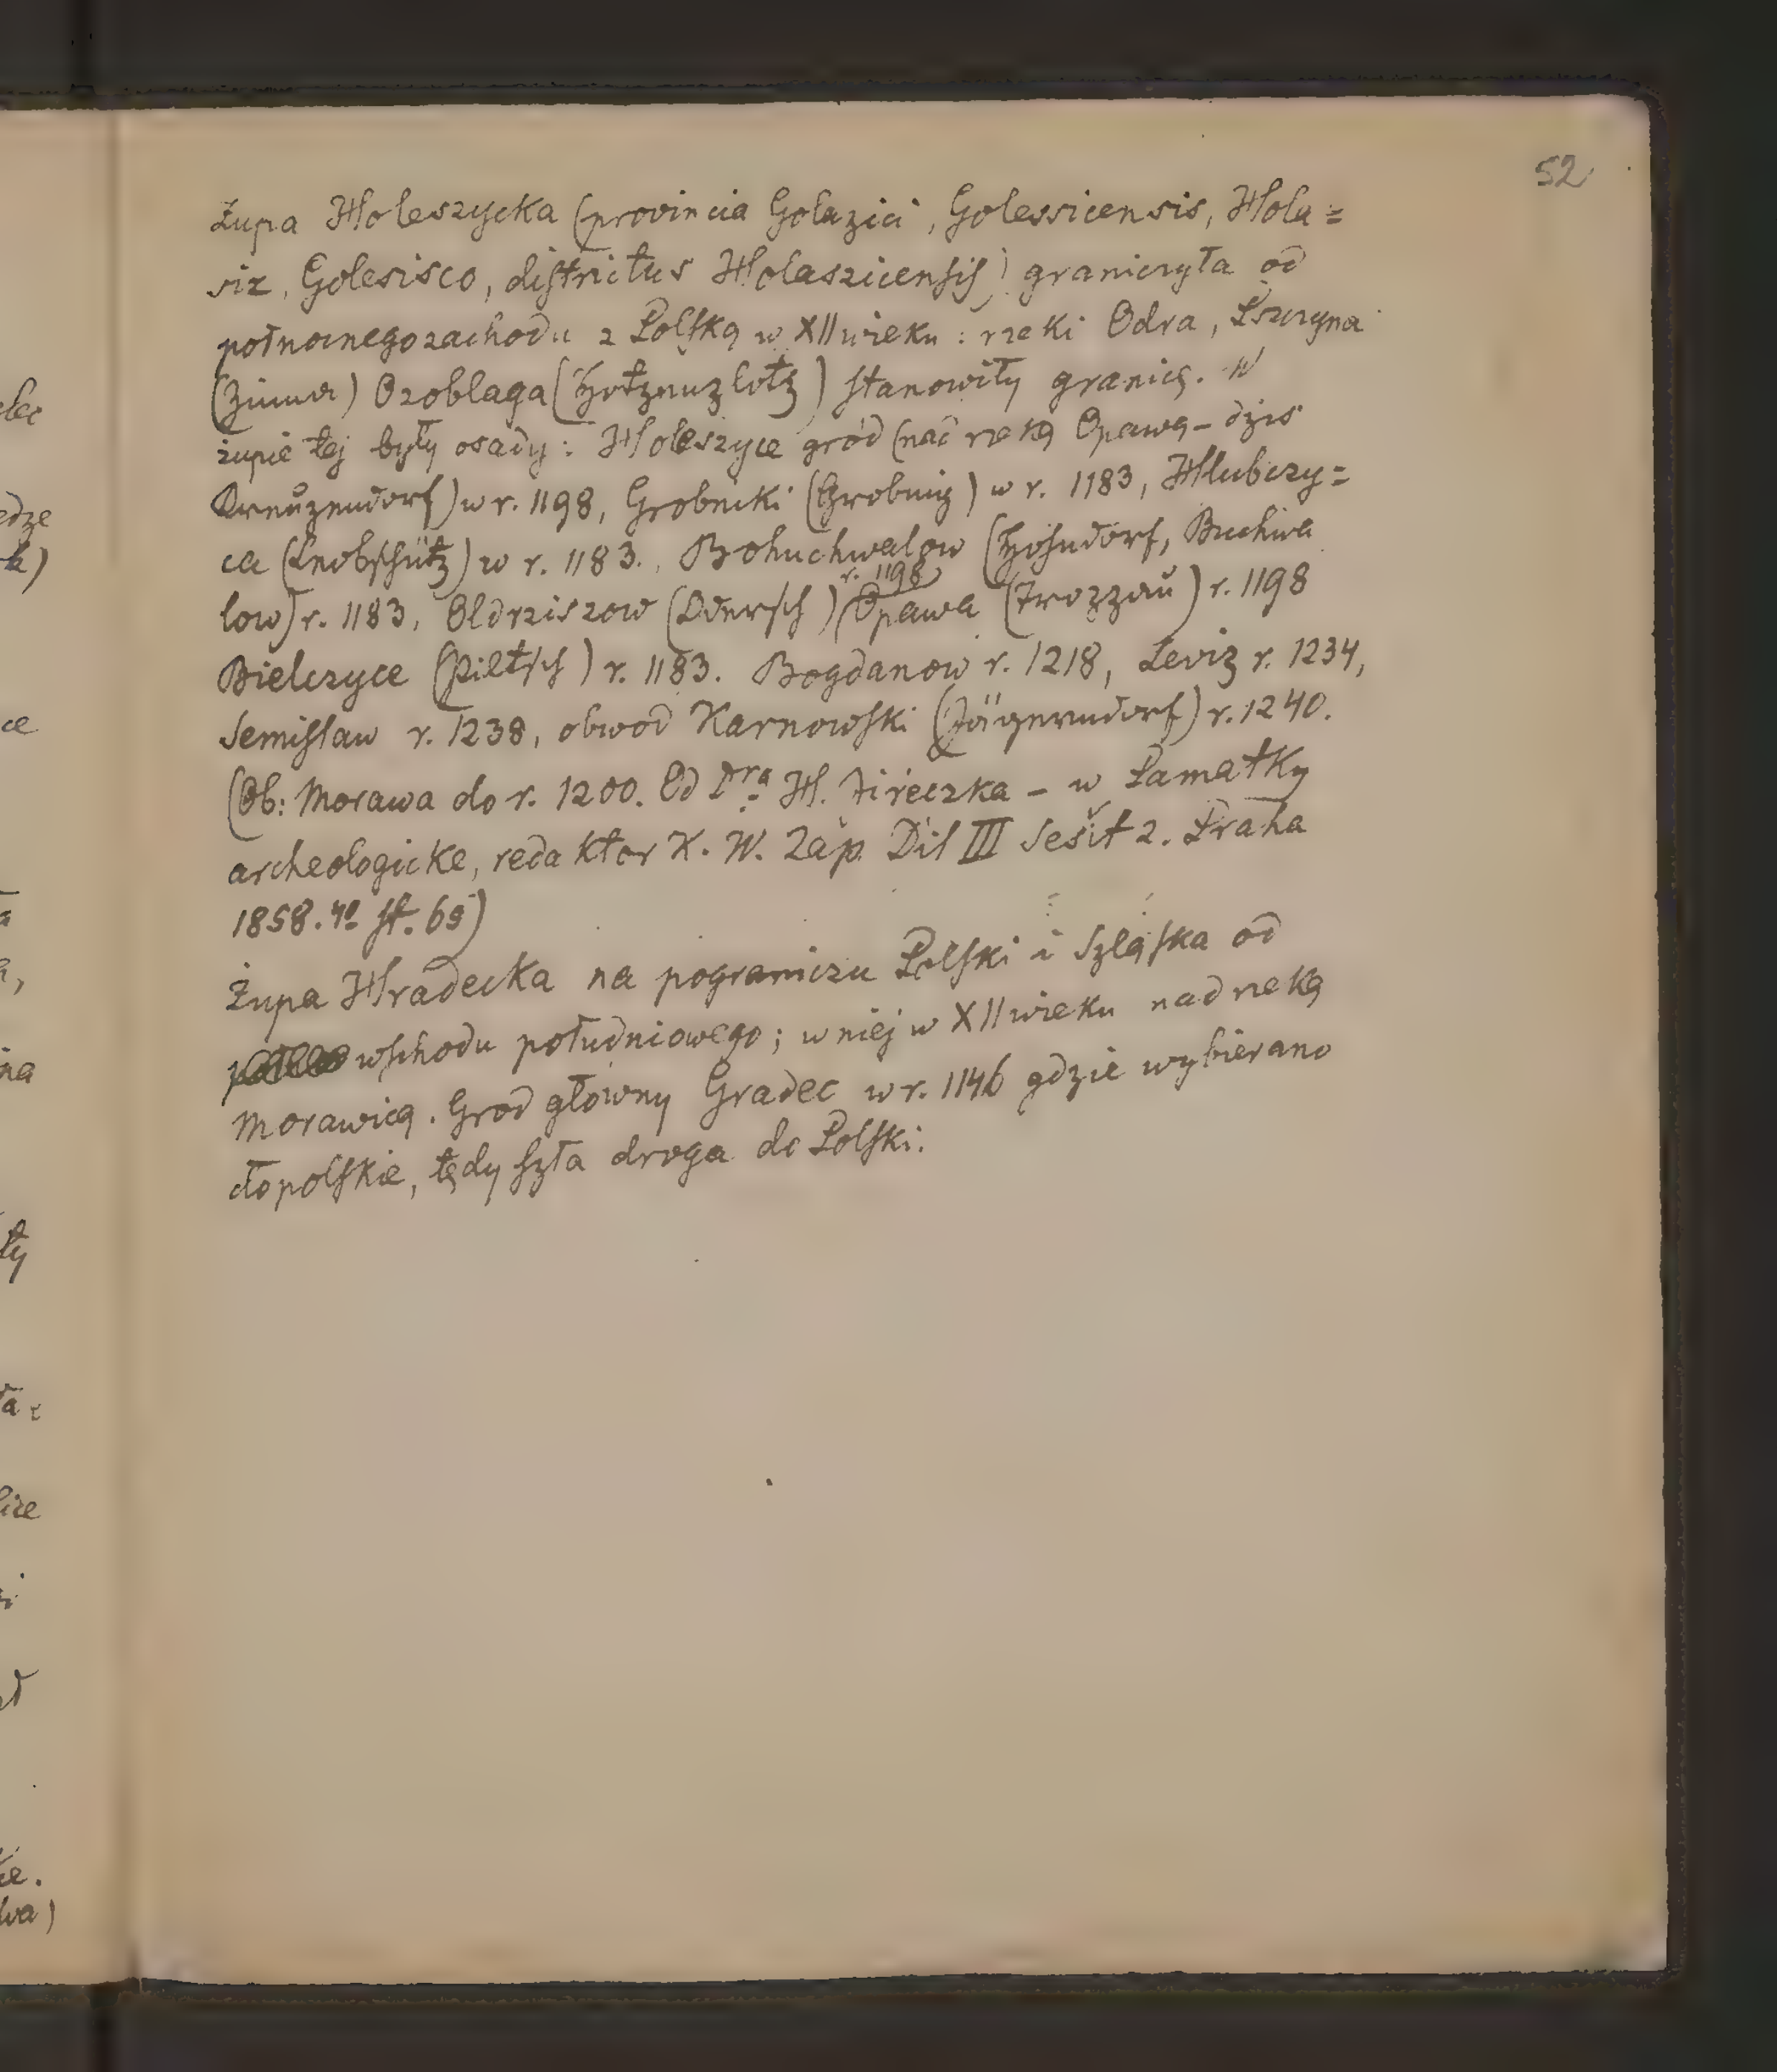 52
Żupa Holeszycka (provincia Golazici, Golessicensis, Hola=
siz, Golesisco, districtus Holaszicensis) graniczyła od
połnocnegozachodu z Polską w XII wieku: rzeki Odra, Pszczyna
(Zinna) Ozoblaga (Hotzenuzlotz) stanowiły granicę. W
żupie tej były osady: Holeszyce gród (nad rzeką Opawą – dziś
Kreuzendorf) w r. 1198, Grobniki (Grobnig) w r. 1183, Hlubczy=
ca (Leobschütz) w r. 1183., Bohuchwalow (Hošndorf, Buchwa
low) r. 1183, Oldrziszow (Odersch) r. 1198 Opawa (Troppau) r. 1198
Bielczyce (Pieltsch) r. 1183. Bogdanow r. 1218, Leviz r. 1234,
Semislaw r. 1238, obwod Karnowski (Jägerndorf) r. 1240.
(Ob: Morawa do r. 1200. Od Dra H. Jirečzka – w Pamatky
archeologicke, redaktor K. W. Zap. Dil III Sešit 2. Praha
1858. 4o st. 69)
Żupa Hradecka na pograniczu Polski i Szląska od
wschodu południowego; w niej w XII wieku nad rzeką
Morawicą. Grod głowny Gradec w r. 1146 gdzie wybierano
cło polskie, tędy szła droga do Polski.
elec
edze
ce
na
ły
lice